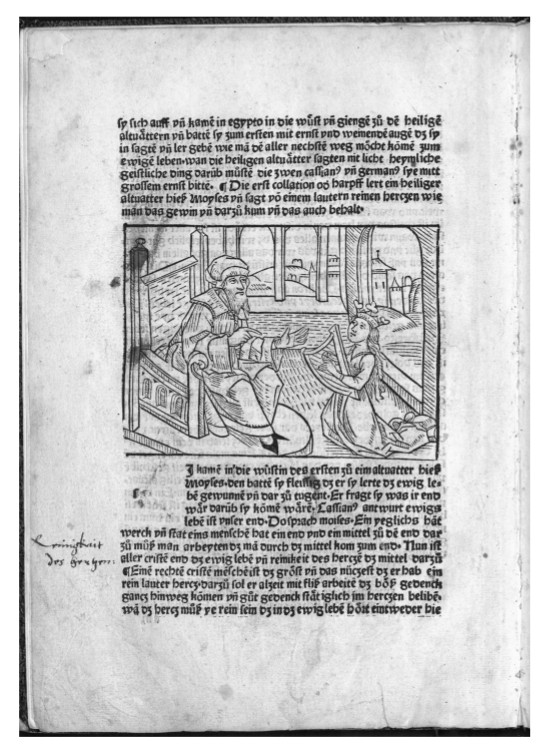 sy sich auff vñ kamẽ in egypto in die wůst vñ giengẽ zů dẽ heiligẽ
altuåttern vñ battẽ sy zum ersten mit ernst vnd weinendẽ augẽ dz sy
in sagtẽ vñ ler gebẽ wie mã dẽ aller nechstẽ weg möcht kömẽ zum
ewigẽ leben·wan die heiligen altuåtter sagten nit licht heymliche
geistliche ding darũb můstẽ die zwen cassianꝰ vñ germanꝰ sye mitt
grossem ernst bittẽ· ¶ Die erst collation oď harpff lert ein heiliger
altuatter hieß Moyses vñ sagt võ einem lautern reinen herczen wie
man das gewin vñ darzů kum vñ das auch behalt·
J kamẽ in die wůstin des ersten zů eim altuatter hieß
Moyses·den battẽ sy fleissig dz er sy lerte dz ewig le-
bẽ gewunnẽ vñ dar zů tugent·Er fragt sy was ir end
wår darũb sy kömẽ wårẽ·Cassianꝰ antwurt ewigs
lebẽ ist vnser end·Do sprach moises·Ein yeglichs håt
werck vñ stat eins menschẽ hat ein end vnd ein mittel zů dẽ end dar
zů můß man arbeyten dz mã durch dz mittel kom zum end· Nun ist
aller cristẽ end dz ewig lebẽ vñ reinikeit des herczẽ dz mittel darzů
¶Einẽ rechtẽ cristẽ mẽschẽ ist dz gröst vñ das nüczest dz er hab ein
rein lauter hercz·darzů sol er alzeit mit fliß arbeitẽ dz böß gedenck
gancz hinweg kömen vñ gůt gedenck ståtiglich im herczen belibẽ·
wã dz hercz můß ye rein sein dz in dz ewig lebẽ hört eintweder hie
Reinigkeit
des